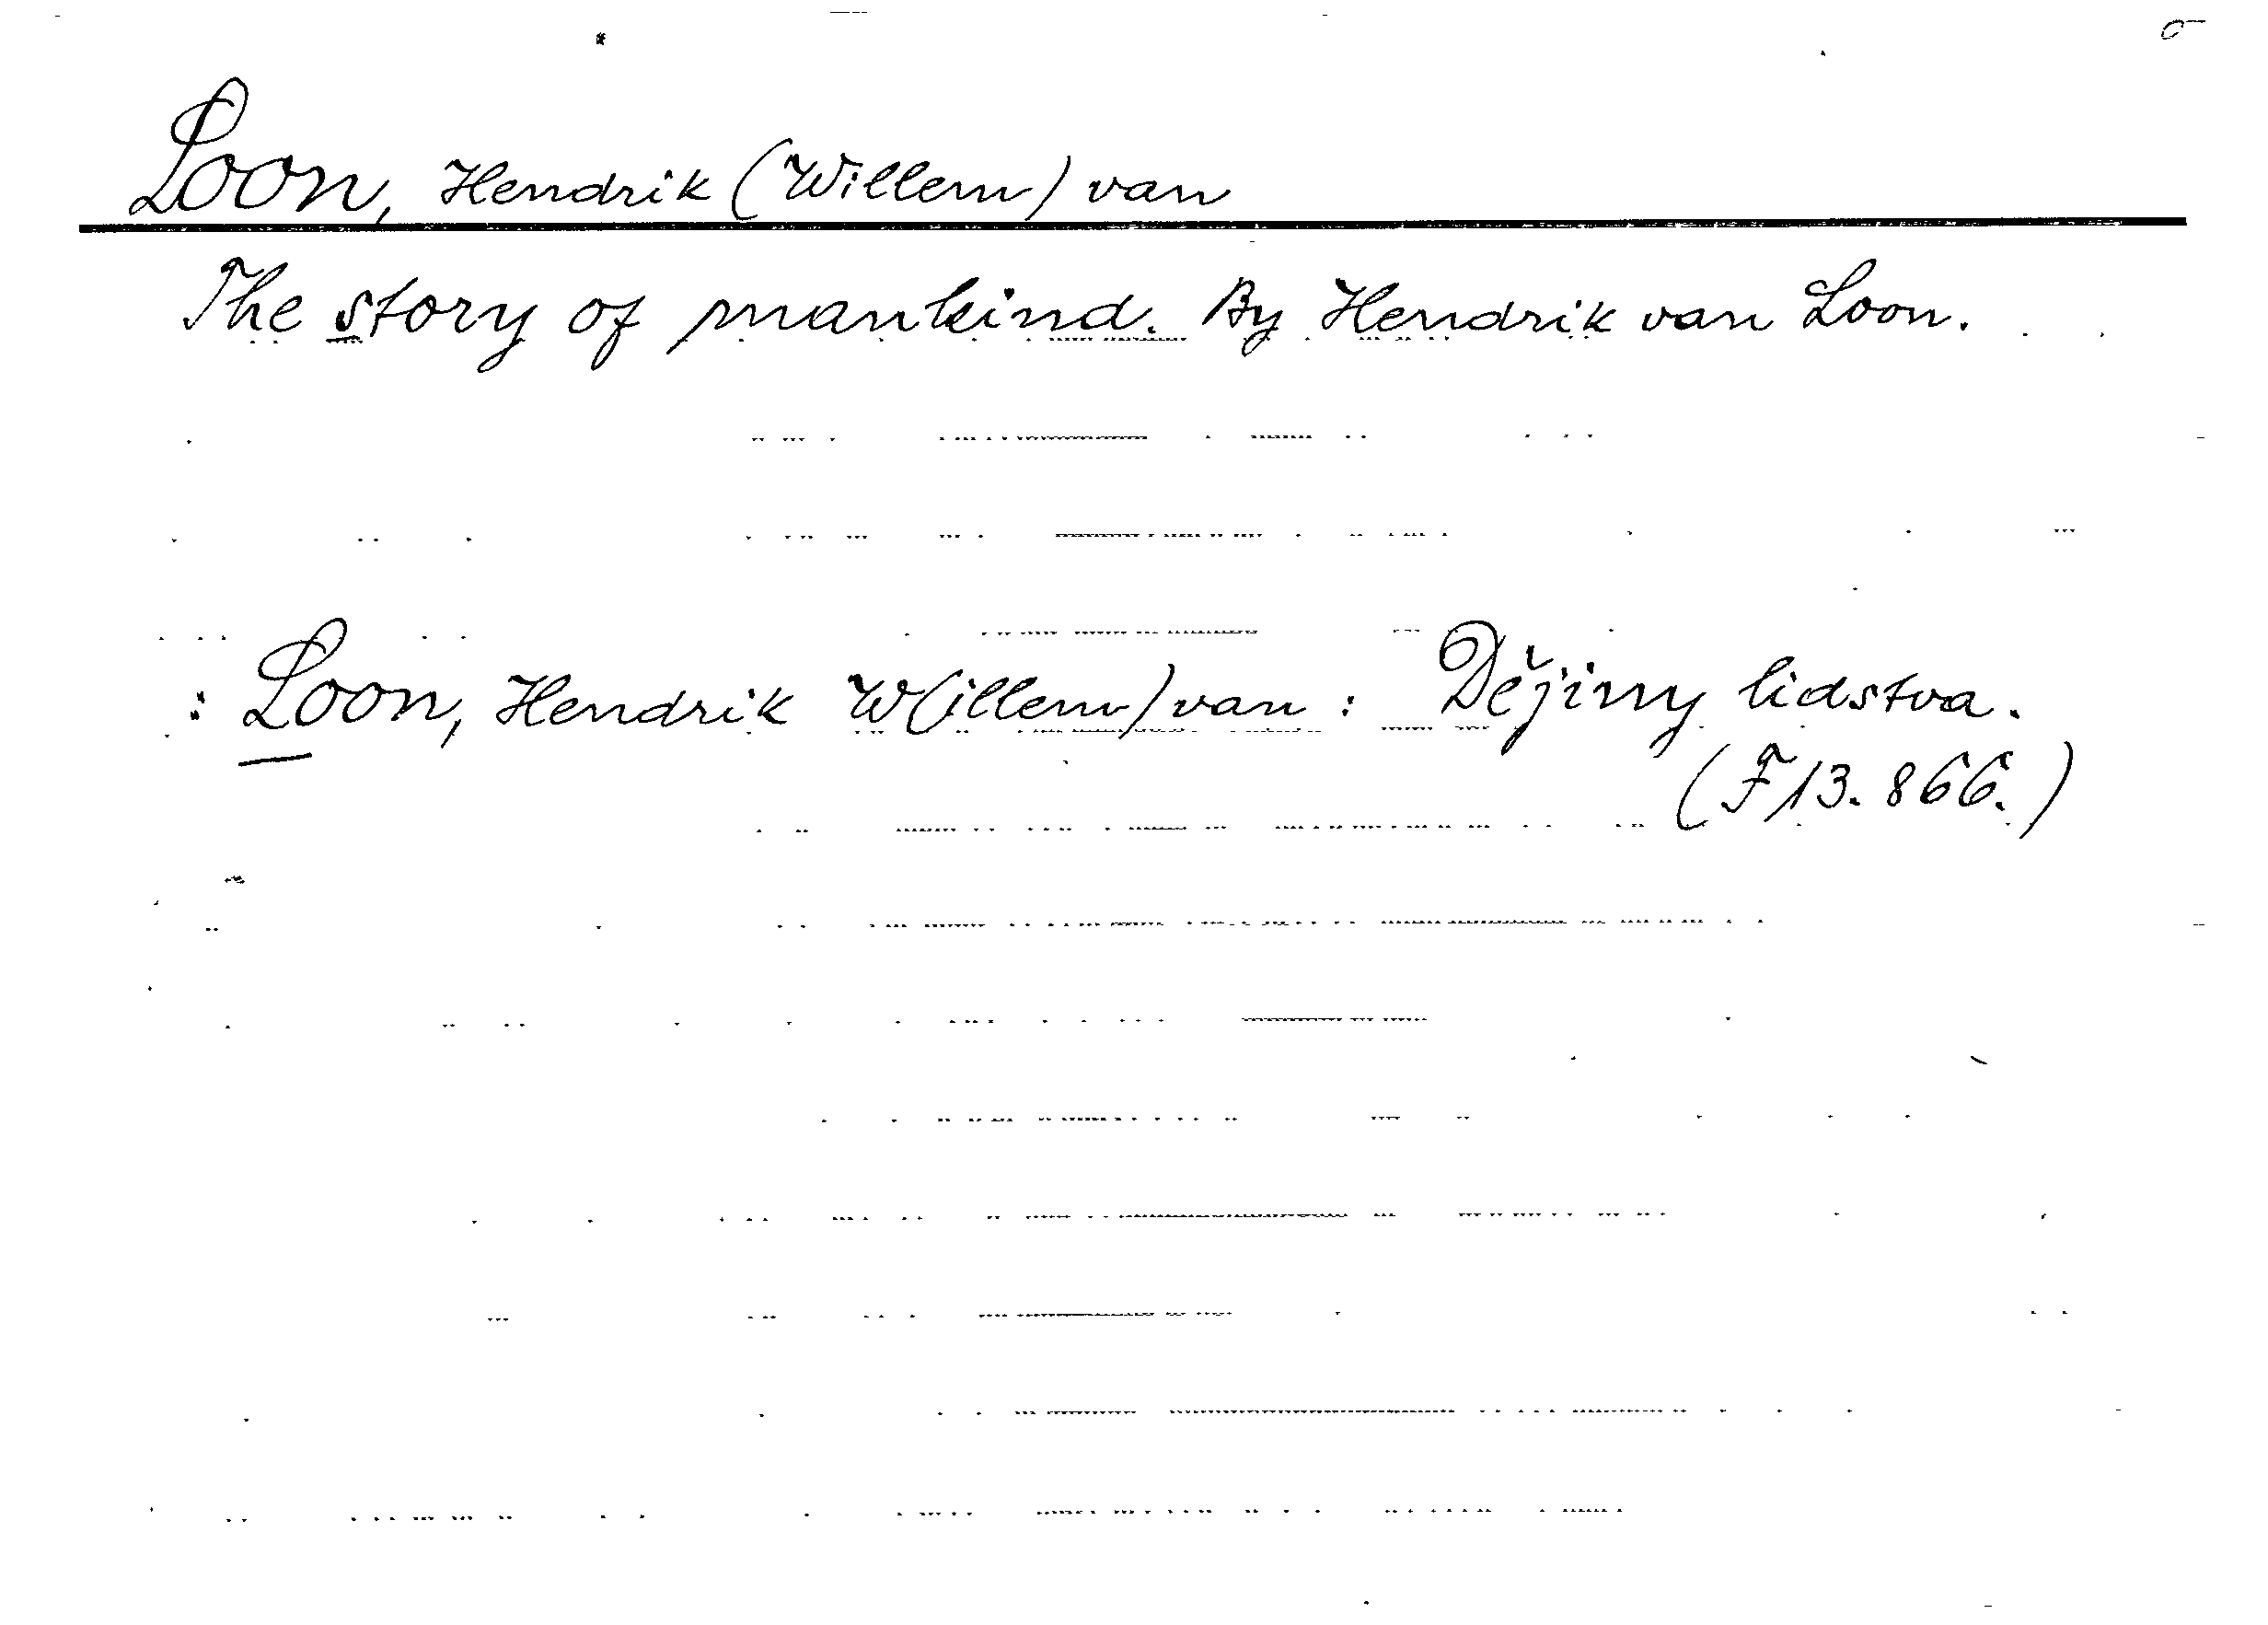 Loon, Hendrik (Willem) van
The story of mankind. By Hendrik van Loon.
: Loon, Hendrik W(illem) van : Dějiny lidstva.
(F 13.866.)